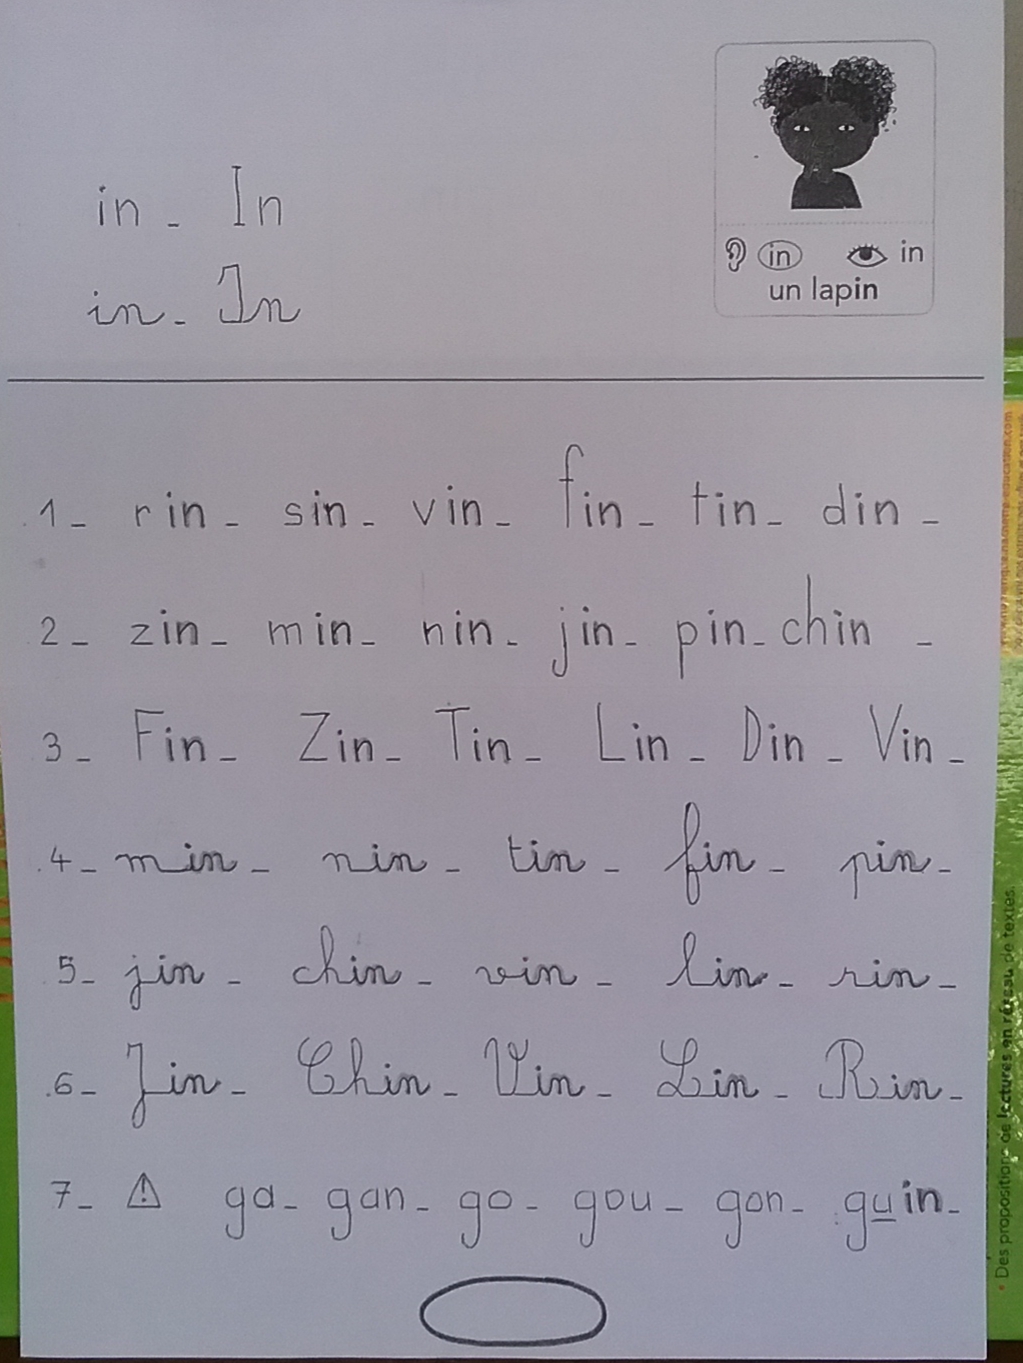 in - In
in - In
in in
un lapin
1 - rin - sin - vin - fin - tin - din -
2 - zin - min - nin - jin - pin - chin -
3 - Fin - Zin - Tin - Lin - Din - Vin -
4 - min - nin - tin - fin - pin -
5 - jin - chin - vin - lin - rin -
6 - Jin - Chin - Vin - Lin - Rin -
7 - ⚠ ga - gan - go - gou - gon - guin -
• Des propositions de lectures en réseau de textes.